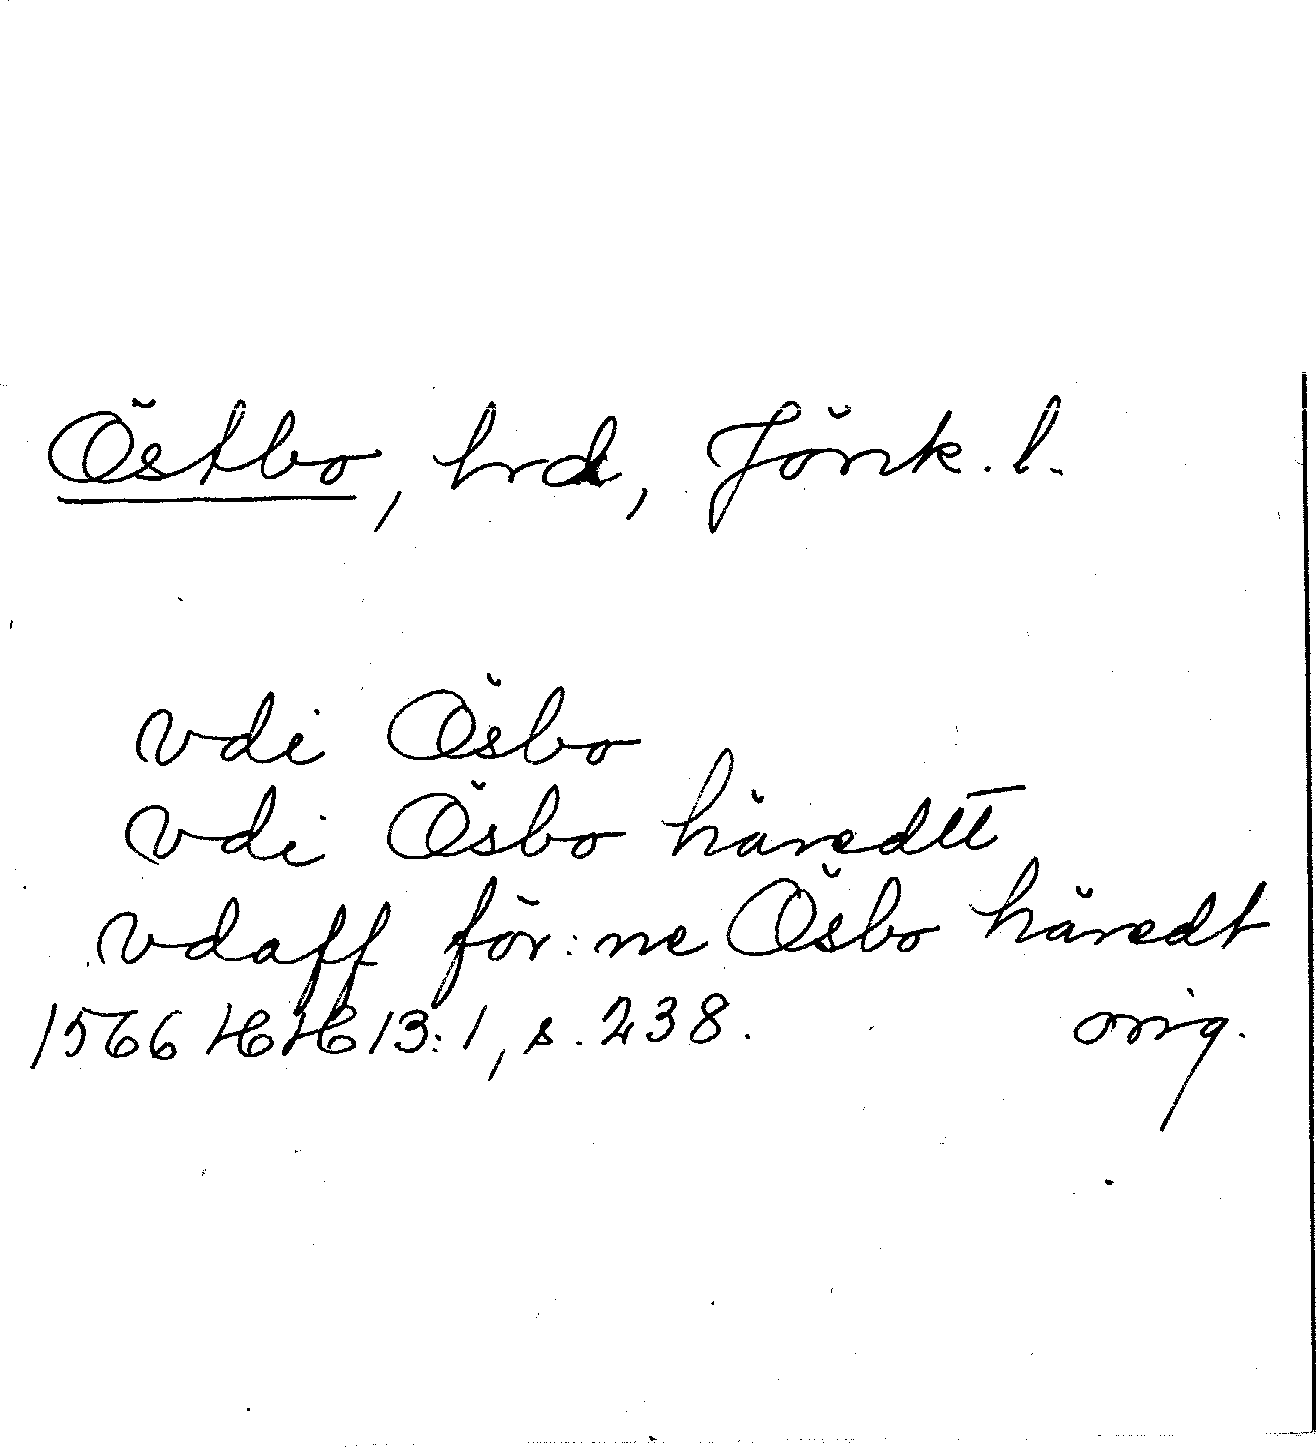 Östbo, hrd, Jönk. l.
vdi Ösbo
vdi Ösbo häredtt
vdaff för:ne Ösbo häredt
1566 HH 13:1, s. 238. orig.